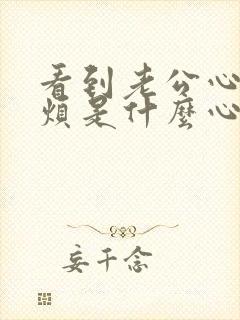 看到老公心
烦是什麼心
妄千念